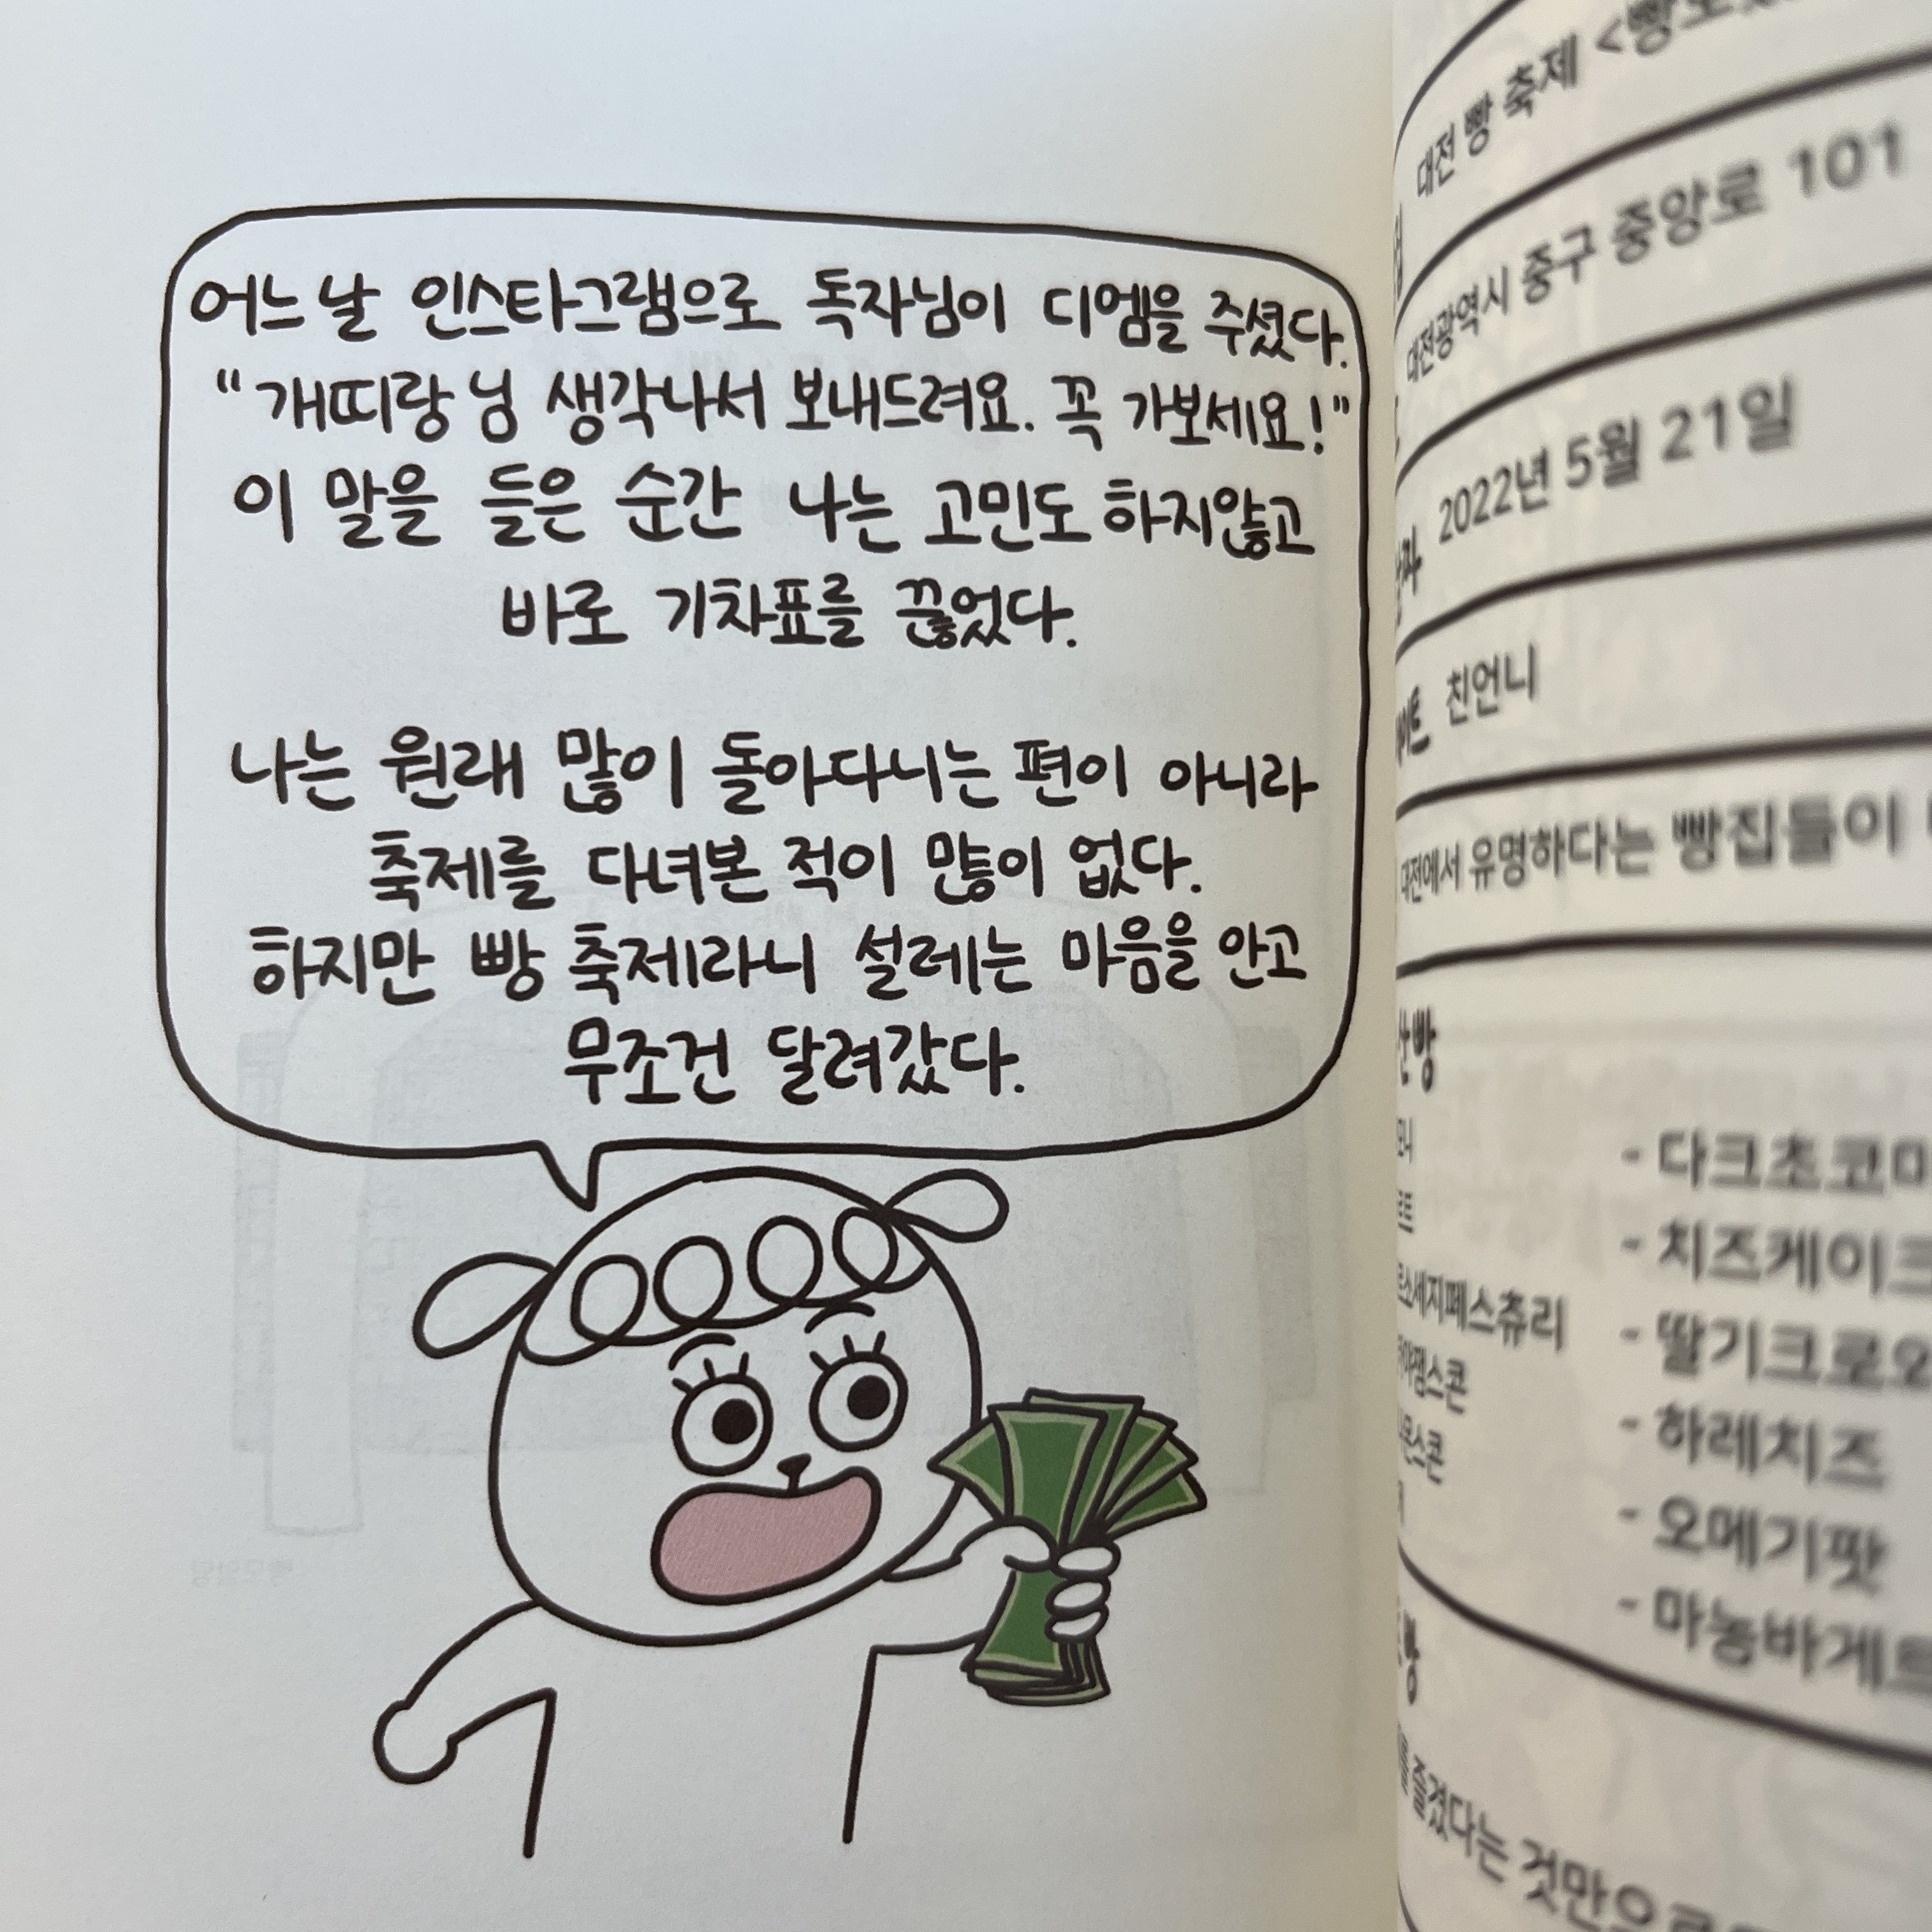 어느 날 인스타그램으로 독자님이 디엠을 주셨다.
“개띠랑 님 생각나서 보내드려요. 꼭 가보세요!”
이 말을 들은 순간 나는 고민도 하지않고
바로 기차표를 끊었다.
나는 원래 많이 돌아다니는 편이 아니라
축제를 다녀본 적이 많이 없다.
하지만 빵 축제라니 설레는 마음을 안고
무조건 달려갔다.
대전 빵 축제
대전광역시 중구 중앙로 101
2022년 5월 21일
친언니
대전에서 유명하다는 빵집들이
- 다크초코
- 치즈케이크
- 딸기크로
- 하레치즈
- 오메기팟
- 마농바게트
즐겼다는 것만으로